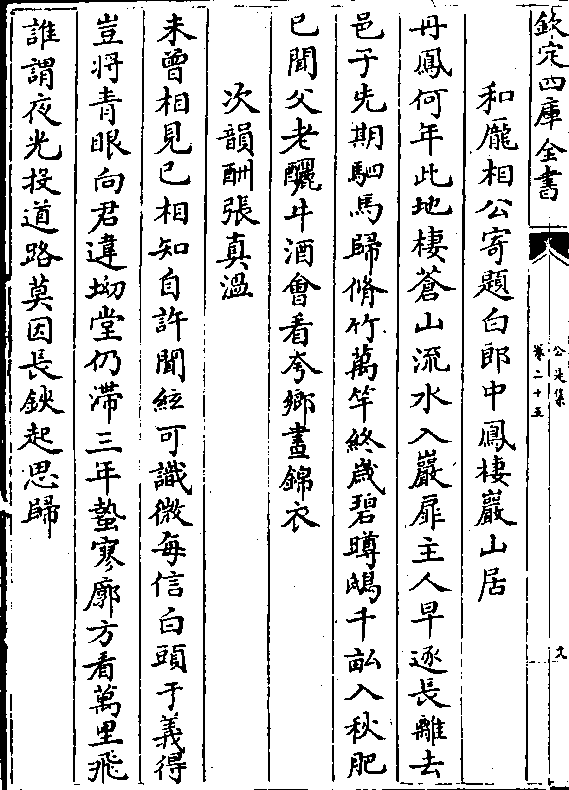 欽定四庫全書
公是集
卷二十五
九
和龐相公寄題白郎中鳳棲巖山居
丹鳳何年此地棲蒼山流水入巖扉主人早逐長離去
邑子先期駟馬歸脩竹萬竿終歲碧蹲鴟千畝入秋肥
已聞父老釃牛酒會看夸鄉晝錦衣
次韻酬張真溫
未曾相見已相知自許聞絃可識微每信白頭于義得
豈將青眼向君違坳堂仍滯三年蟄寥廓方看萬里飛
誰謂夜光投道路莫因長鋏起思歸